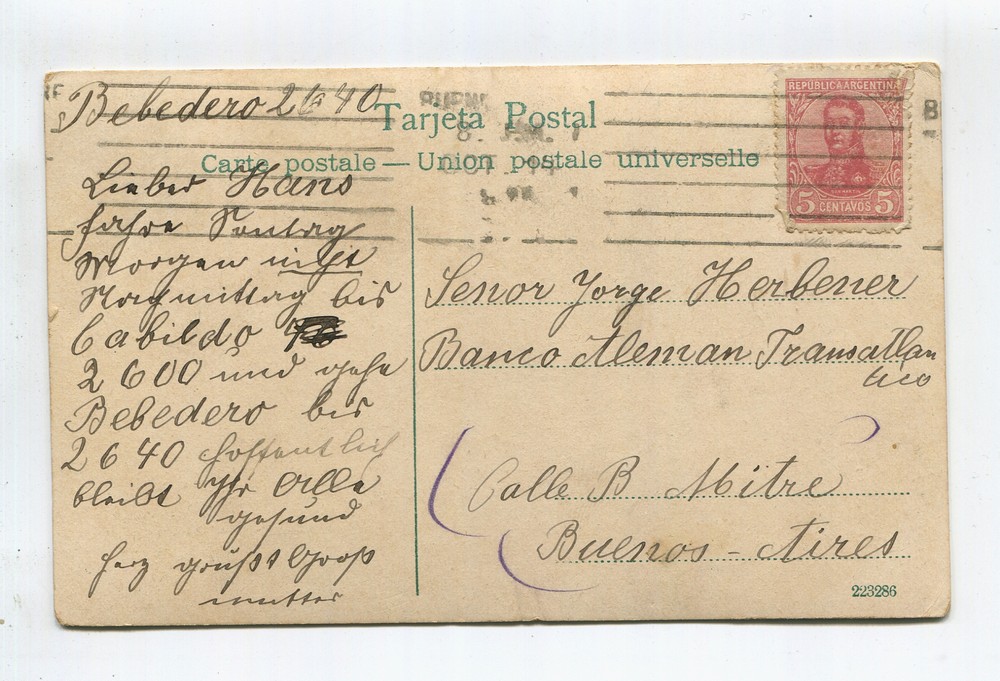 Bebedero 2640
Tarjeta Postal
Carte postale — Union postale universelle
REPUBLICA ARGENTINA
5 CENTAVOS 5
Lieber Hans
fahre Sontag
Morgen nicht
Nachmittag bis
Cabildo
2600 und gehe
Bebedero bis
2640 hoffentlich
bleibt Ihr Alle
gesund
herz grüßt Groß
mutter
Senor Jorge Herbener
Banco Aleman Transatlan
tico
Calle B Mitre
Buenos - Aires
223286